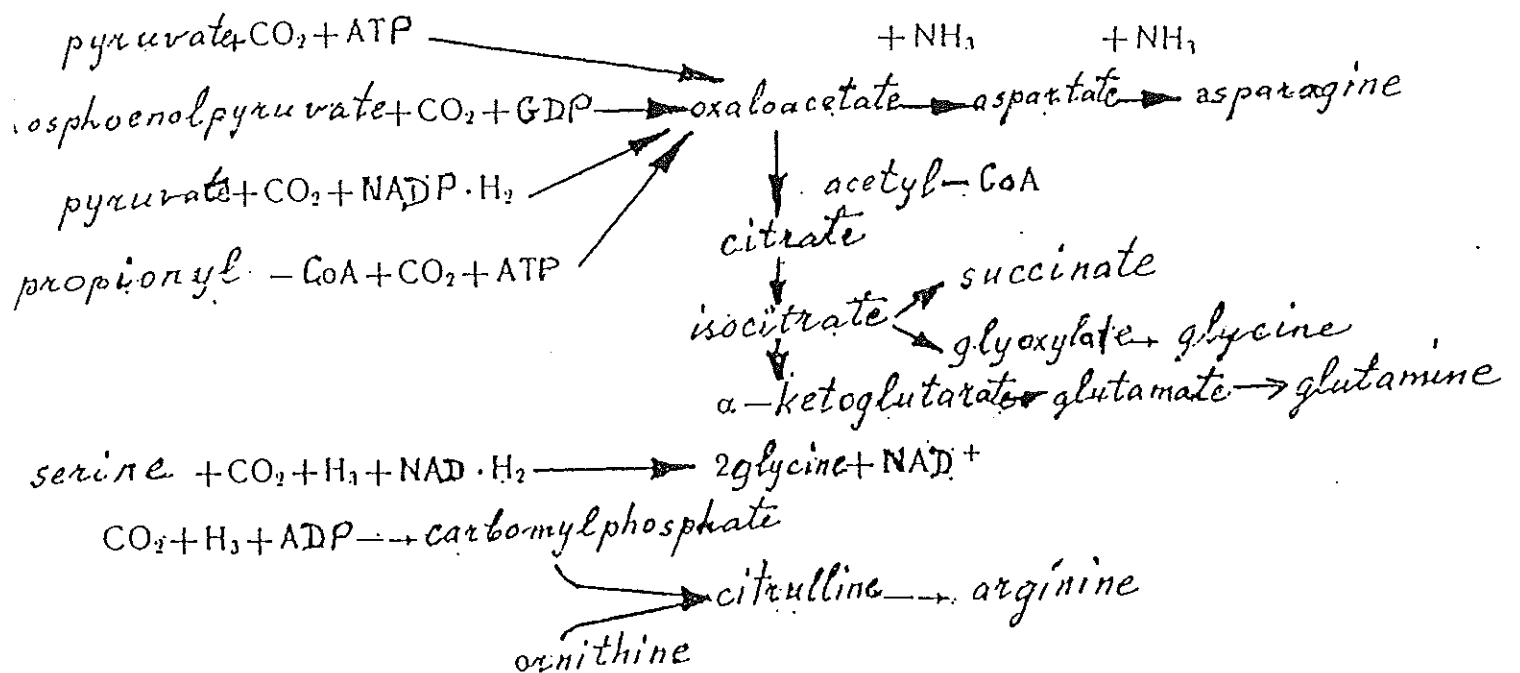 pyruvate+CO₂+ATP
+NH₃ +NH₃
osphoenolpyruvate+CO₂+GDP→oxaloacetate→aspartate→asparagine
pyruvate+CO₂+NADP·H₂
acetyl-CoA
citrate
propionyl -CoA+CO₂+ATP
succinate
isocitrate
glyoxylate→glycine
α-ketoglutarate→glutamate→glutamine
serine +CO₂+H₃+NAD·H₂→2glycine+NAD⁺
CO₂+H₃+ADP→carbomylphosphate
citrulline→arginine
ornithine